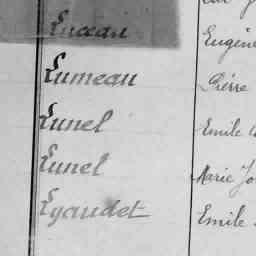 Luceau Eugène
Lumeau Pierre
Lunel Emile
Lunel Marie
Lyaudet Emile